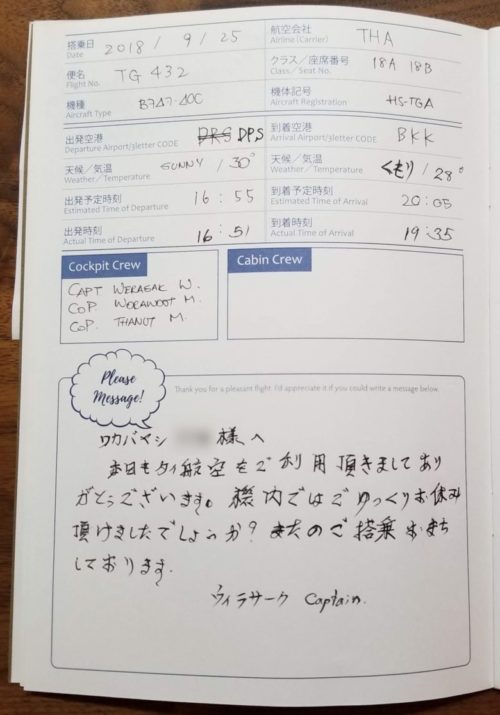 搭乗日 Date 2018 / 9 / 25 航空会社 Airline (Carrier) THA
便名 Flight No. TG 432 クラス／座席番号 Class / Seat No. 18A 18B
機種 Aircraft Type B747-400 機体記号 Aircraft Registration HS-TGA
出発空港 Departure Airport/3letter CODE DPS 到着空港 Arrival Airport/3letter CODE BKK
天候／気温 Weather / Temperature SUNNY / 30° 天候／気温 Weather / Temperature くもり / 28°
出発予定時刻 Estimated Time of Departure 16 : 55 到着予定時刻 Estimated Time of Arrival 20 : 05
出発時刻 Actual Time of Departure 16 : 51 到着時刻 Actual Time of Arrival 19 : 35
Cockpit Crew
CAPT WERASAK W.
COP. WORAWOOT M.
COP. THANUT M.
Cabin Crew
Please
Message!
Thank you for a pleasant flight. I'd appreciate it if you could write a message below.
ワカバヤシ 様へ
本日もタイ航空をご利用頂きましてあり
がとうございます。機内ではごゆっくりお休み
頂けましたでしょうか？またのご搭乗おまち
しております.
ウィラサーク Captain.